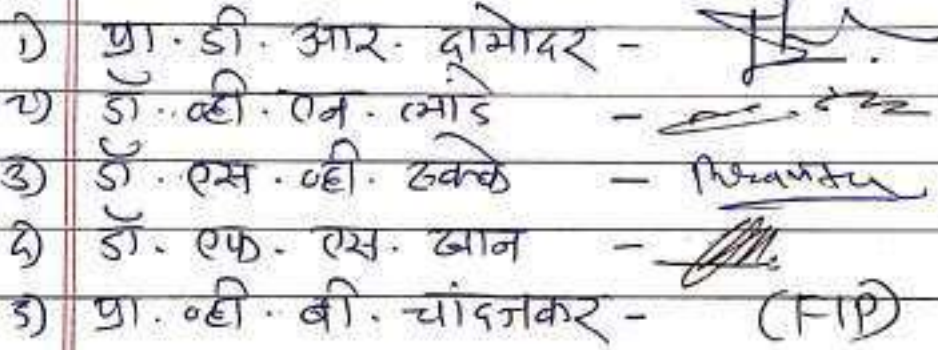 १) प्रा. डी. आर. दामोदर -
२) डॉ. व्ही. एन. लांडे -
३) डॉ. एस. व्ही. ढवळे -
४) डॉ. एफ. एस. खान -
५) प्रा. व्ही. बी. चांदजकर - (FIP)